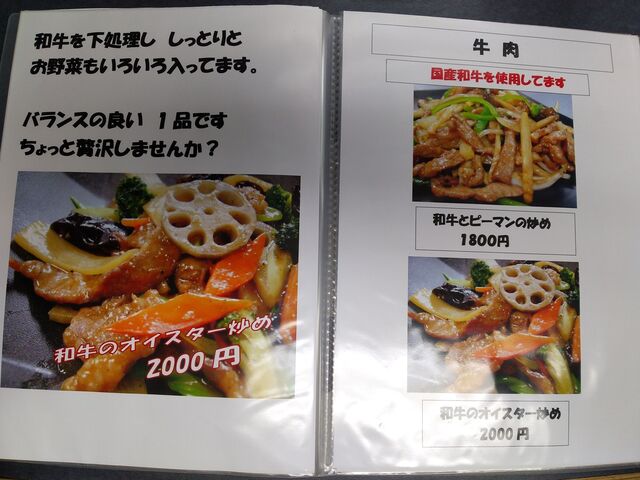 和牛を下処理し しっとりと
お野菜もいろいろ入ってます。
バランスの良い 1品です
ちょっと贅沢しませんか？
和牛のオイスター炒め
2000円
牛肉
国産和牛を使用してます
和牛とピーマンの炒め
1800円
和牛のオイスター炒め
2000円